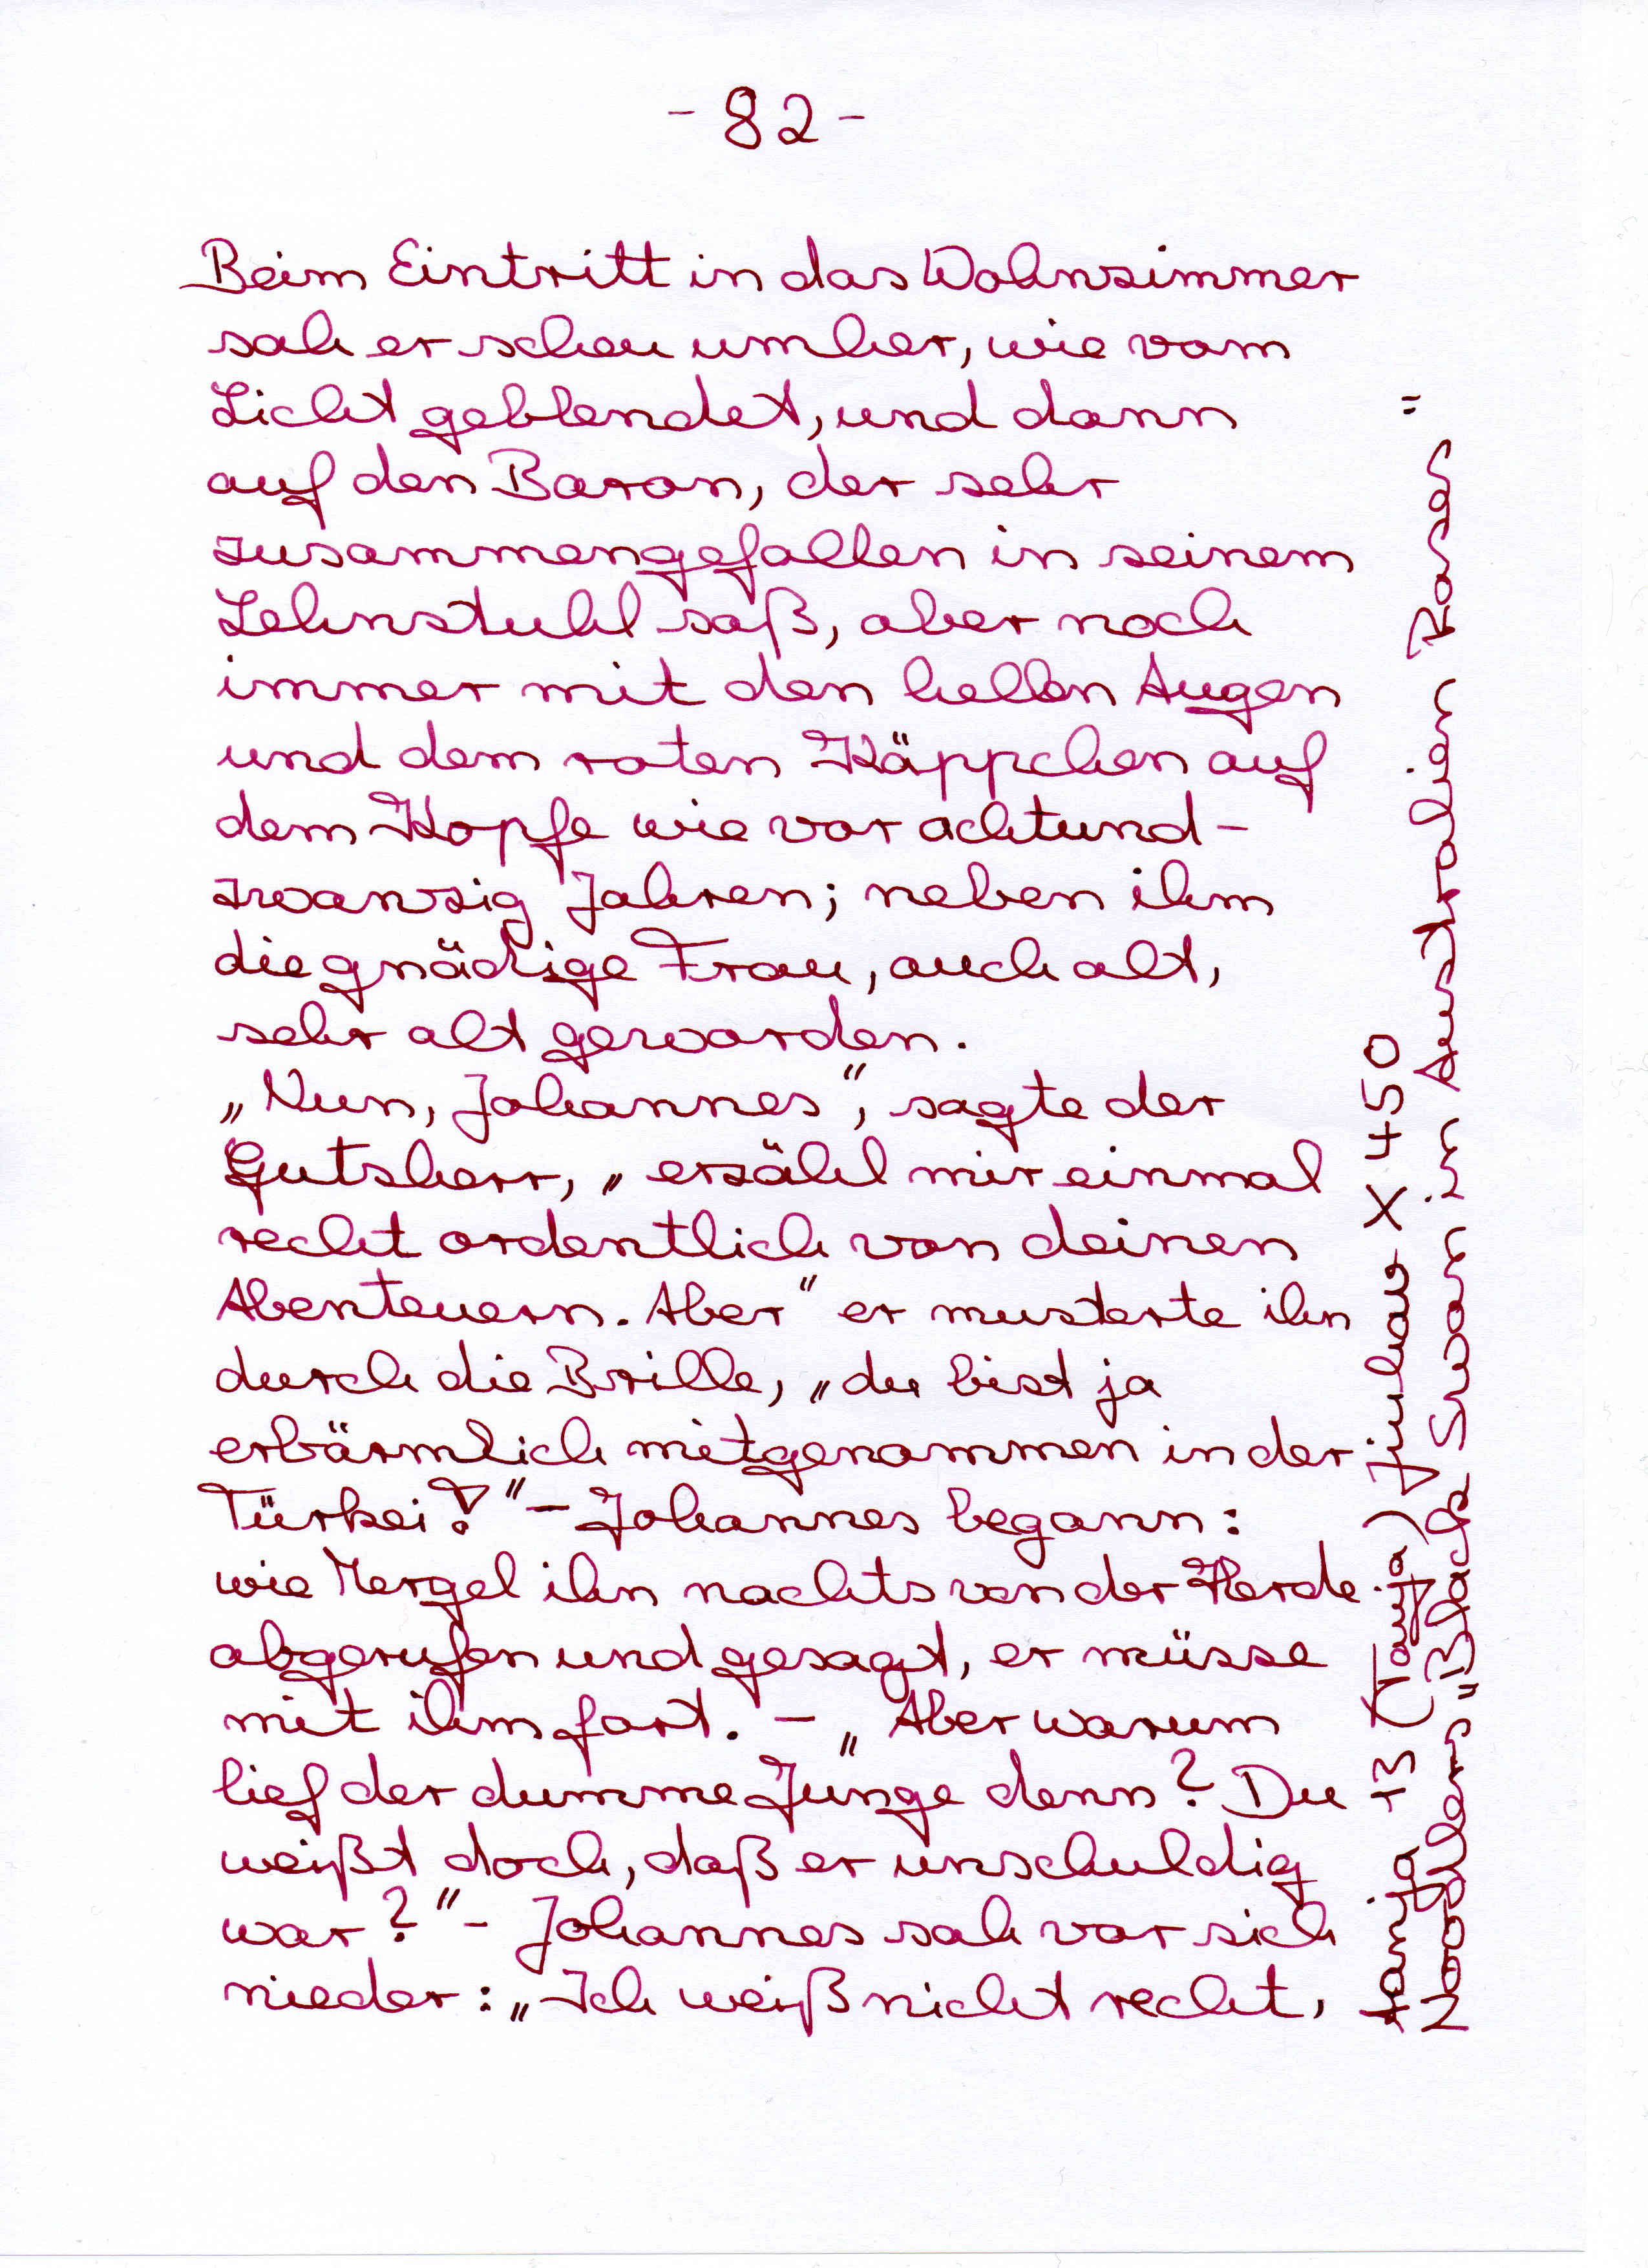 - 82 -
Beim Eintritt in das Wohnzimmer
sah er scheu umher, wie vom
Licht geblendet, und dann
auf den Baron, der sehr
zusammengefallen in seinem
Lehnstuhl saß, aber noch
immer mit den hellen Augen
und dem roten Käppchen auf
dem Kopfe wie vor achtund-
zwanzig Jahren; neben ihm
die gnädige Frau, auch alt,
sehr alt geworden.
„Nun, Johannes“, sagte der
Gutsherr, „erzähl mir einmal
recht ordentlich von deinen
Abenteuern. Aber“ er musterte ihn
durch die Brille, „du bist ja
erbärmlich mitgenommen in der
Türkei!“ – Johannes begann:
wie Mergel ihn nachts von der Herde
abgerufen und gesagt, er müsse
mit ihm fort. – „Aber warum
lief der dumme Junge denn? Du
weißt doch, daß er unschuldig
war?“ – Johannes sah vor sich
nieder: „Ich weiß nicht recht,
tanja 13 (Tauja) X 450
Noodlers „Black Swan in Australien Roses“